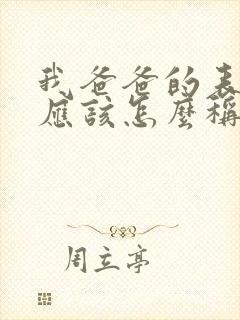 我爸爸的表
應該怎麼稱
周立亭